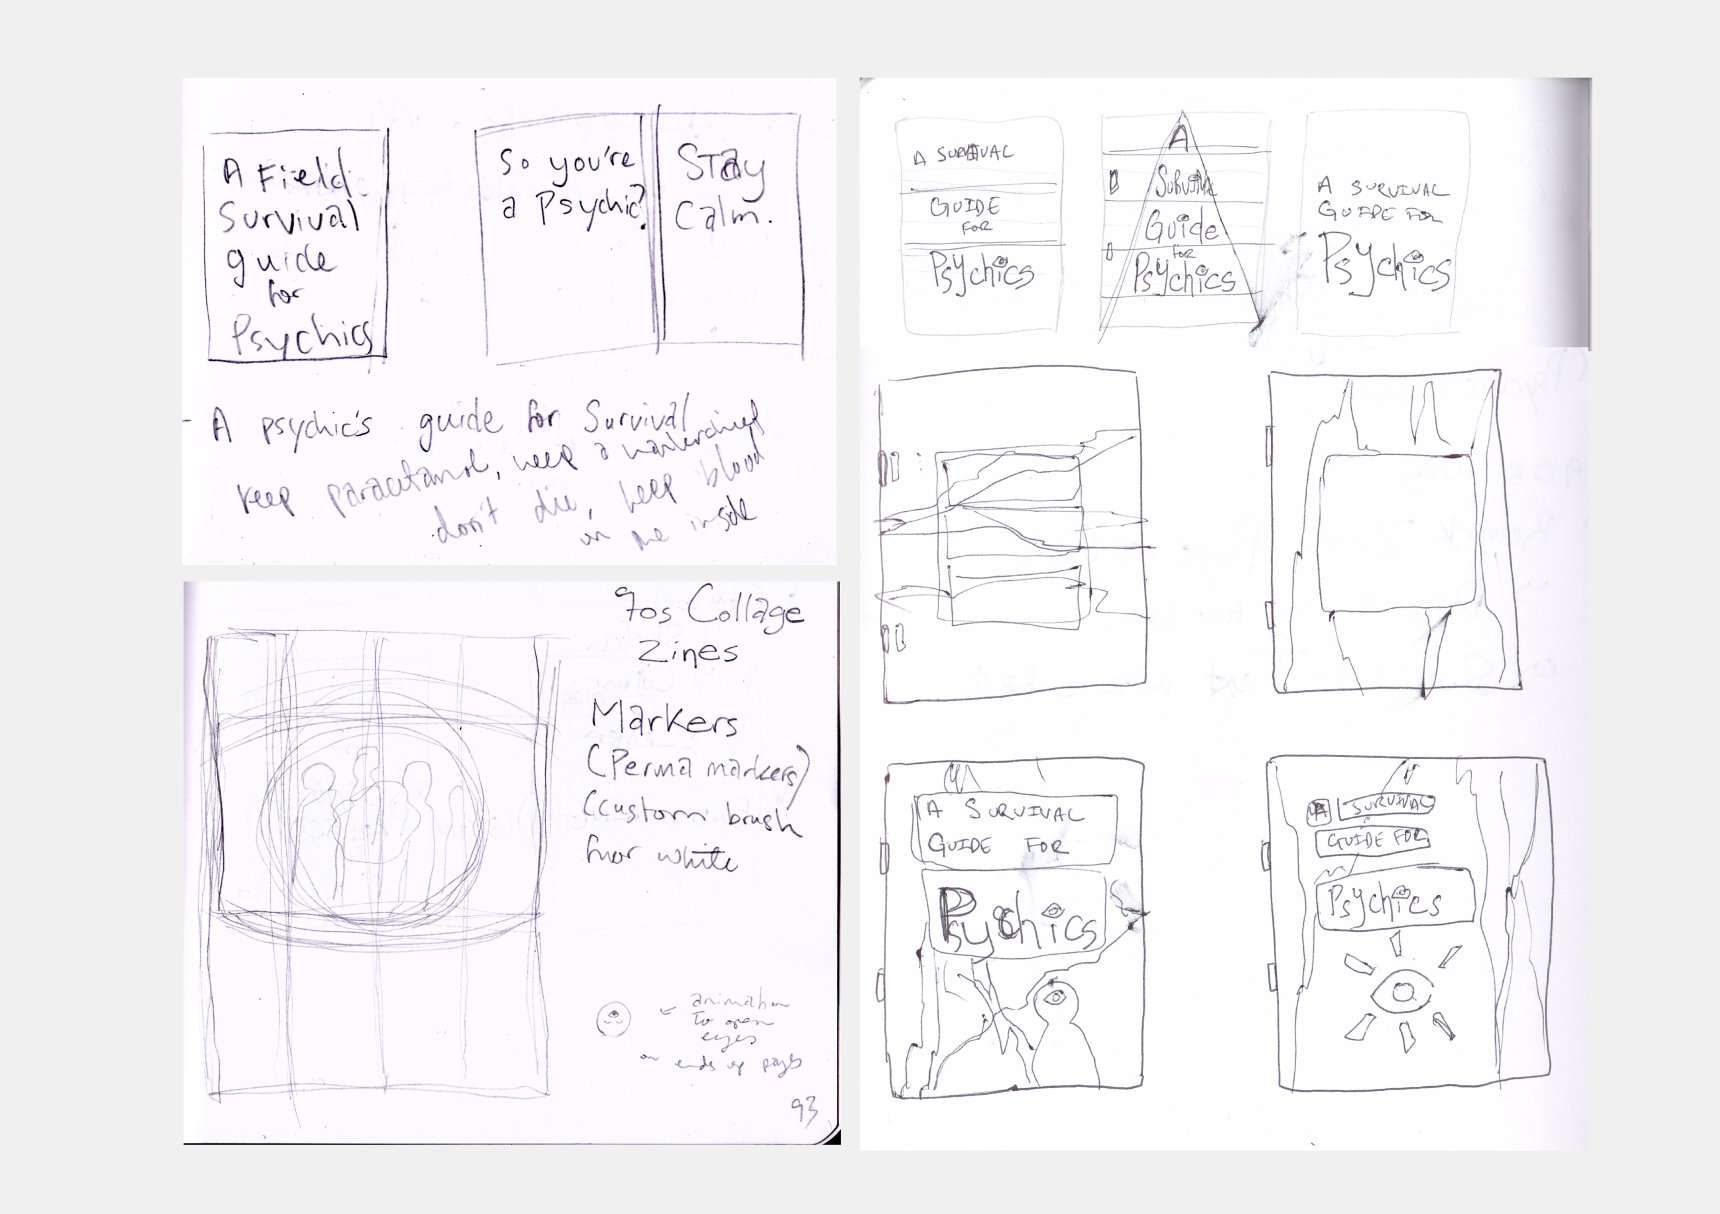 A Field
Survival
guide
for
Psychics
So you're
a Psychic?
Stay
Calm.
- A psychic's guide for Survival
keep paracetamol, keep a
don't die, keep blood
in me inside
90s Collage
Zines
Markers
(Perma markers)
(custom brush
for white
← animation
to open
eyes
on ends of pages
93
A SURVIVAL
GUIDE
FOR
Psychics
A
Survival
Guide
for
Psychics
A SURVIVAL
GUIDE FOR
Psychics
A SURVIVAL
GUIDE FOR
Psychics
A SURVIVAL
GUIDE FOR
Psychics